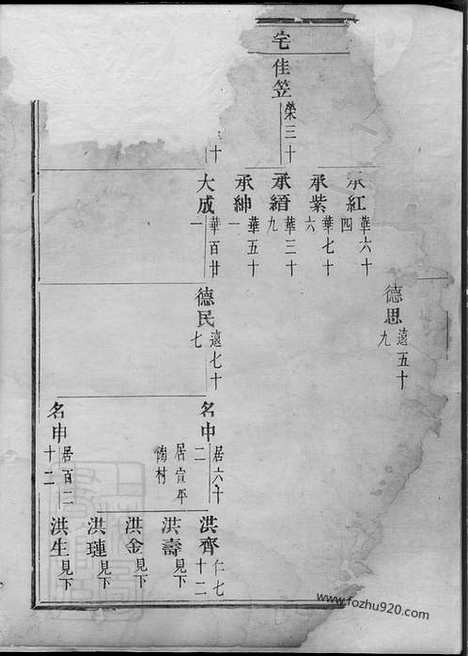 宅
佳笠 榮三十
十
承紅 華六十四
承紫 華七十六
承縉 華三十九
承紳 華五十一
大成 華百廿一
德思 遠五十九
德民 遠七十七
名中 居六十二
居宣平
村
名申 居百二十二
洪齊 仁七十二
洪壽 見下
洪金 見下
洪璉 見下
洪生 見下
www.fozhu920.com